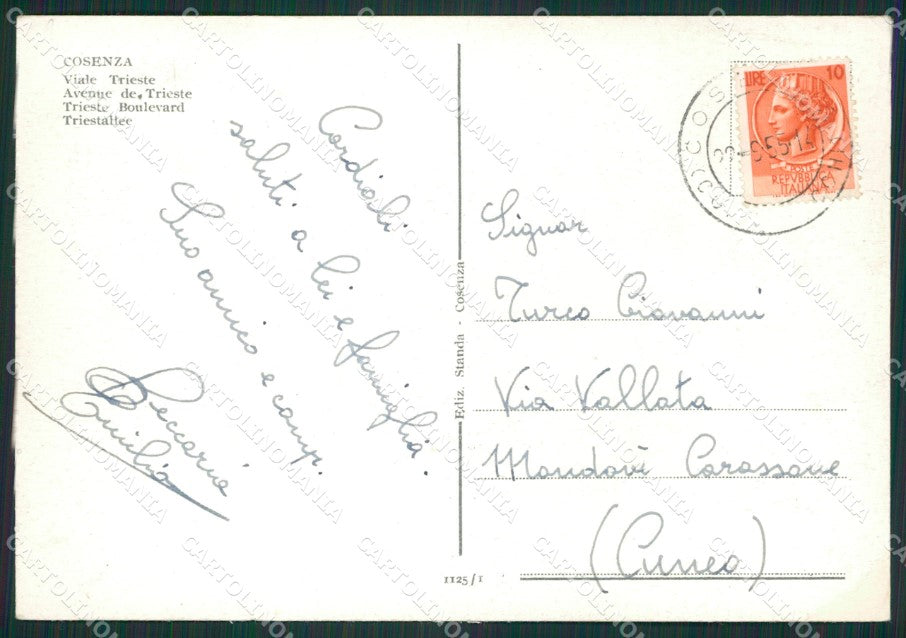 COSENZA
Viale Trieste
Avenue de Trieste
Trieste Boulevard
Triestallee
Cordiali
saluti a lei e famiglia.
Suo amico e comp.
Beccaria
Emilio
Ediz. Standa - Cosenza
1125/I
LIRE 10
POSTE
REPVBBLICA
ITALIANA
Signor
Turco Giovanni
Via Vallata
Mondovì Carassone
(Cuneo)
CARTOLINOMANIA